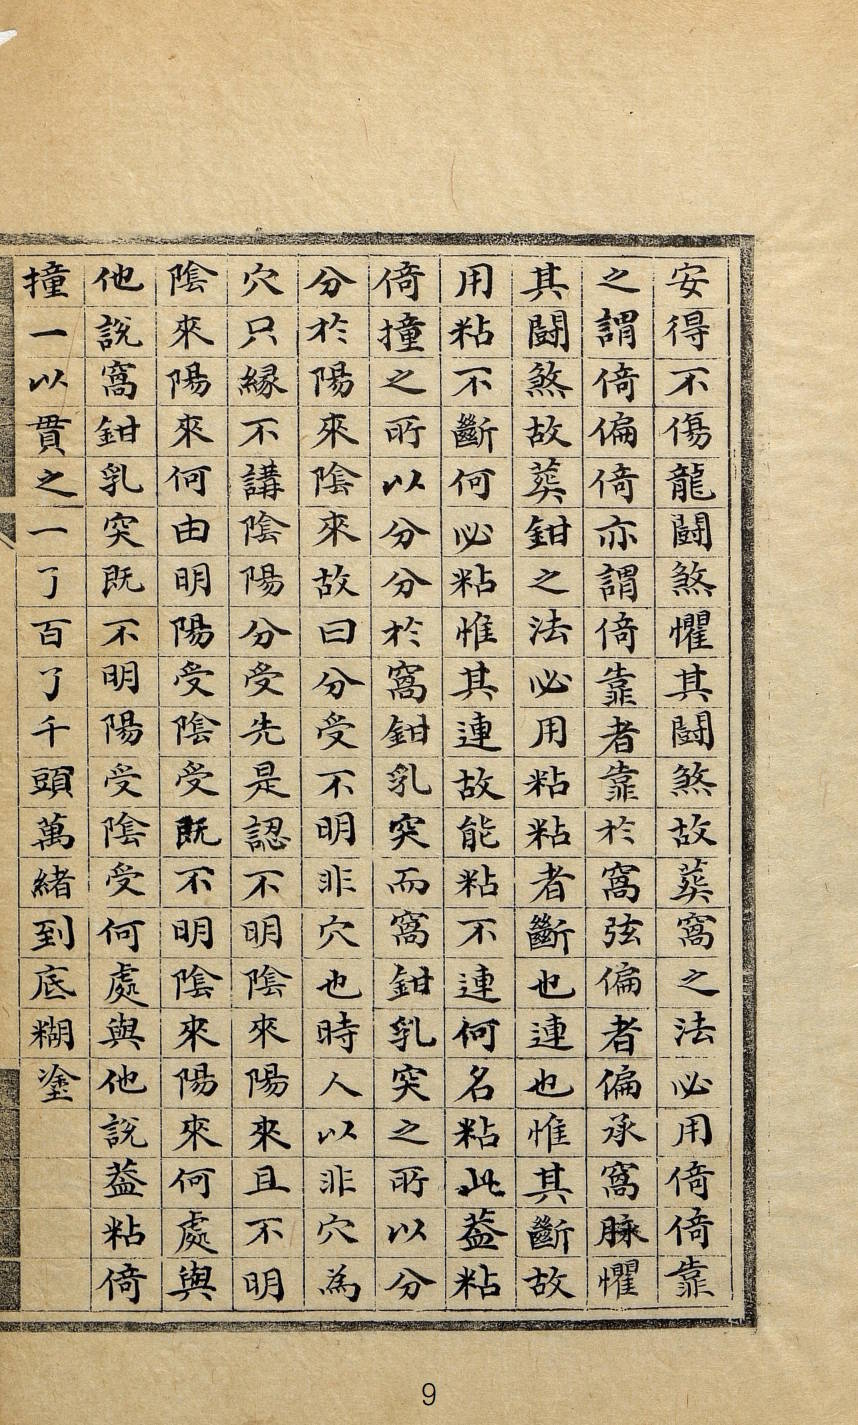 安得不傷龍鬪煞懼其鬪煞故葬窩之法必用倚倚靠
之謂倚偏倚亦謂倚靠者靠於窩弦偏者偏承窩脉懼
其鬪煞故葬鉗之法必用粘粘者斷也連也惟其斷故
用粘不斷何必粘惟其連故能粘不連何名粘此葢粘
倚撞之所以分分於窩鉗乳突而窩鉗乳突之所以分
分於陽來陰來故曰分受不明非穴也時人以非穴為
穴只緣不講陰陽分受先是認不明陰來陽來且不明
陰來陽來何由明陽受陰受既不明陰來陽來何處與
他說窩鉗乳突既不明陽受陰受何處與他說葢粘倚
撞一以貫之一了百了千頭萬緒到底糊塗
9